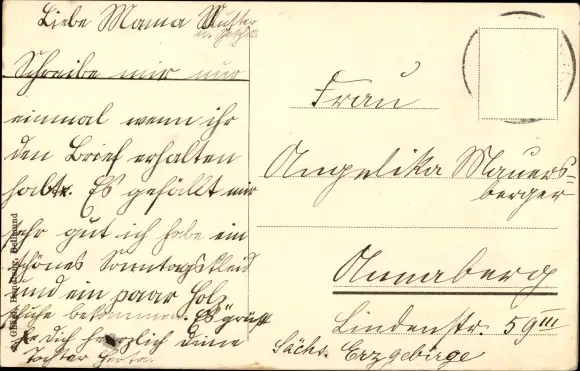 Liebe Mama Mutter
u. Gesch.
Schreibe mir nur
einmal wenn ihr
den Brief erhalten
habt. Es gefällt mir
sehr gut ich habe ein
schönes Sonntagskleid
und ein paar Holz
schuhe bekommen. Es grüßt
Dich herzlich deine
Tochter Herta
Frau
Angelika Mauers=
berger
Annaberg
Lindenstr. 59 III
Sächs. Erzgebirge